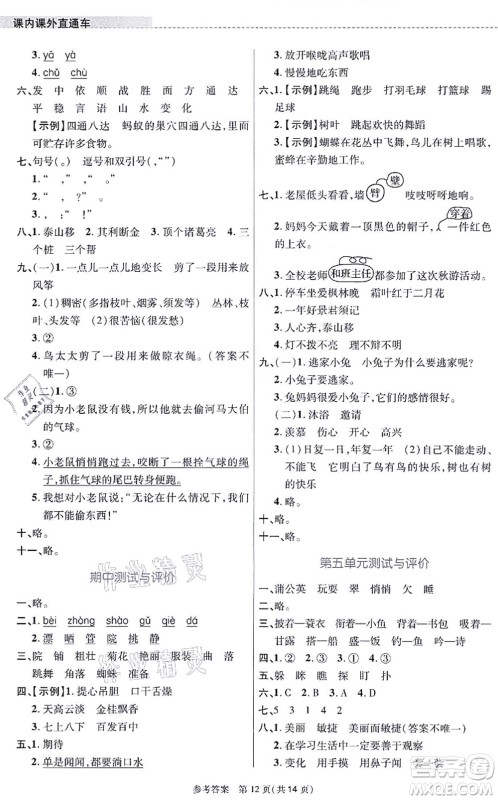 课内课外直通车
3. yā yà
4. chǔ chù
六、发 中 依 顺 战 胜 而 方 通 达
平 稳 言 语 山 水 变 化
【示例】四通八达 蚂蚁的巢穴四通八达,里面
可贮存许多食物。
七、句号(。) 逗号和双引号(,“”)
1. “ , ” , “ 。”
2. “ , ! ”
八、1. 泰山移 2. 其利断金 3. 顶个诸葛亮 4. 三
个桩 三个帮
九、(一)1. 一点儿一点儿地变长 剪了一段用来放
风筝
2. (1)(稠密)(多指叶、烟雾、须发) 丛林、林
地、枝丛 (2)(很苦恼)(很悲伤)
3. ②
4. 鸟太太剪了一段用来做晾衣绳。(答案不
唯一)
(二)1. ③
2. 因为小老鼠没有钱,所以就去偷河马大伯
的气球。
3. ②
4. 小老鼠悄悄跑过去,咬断了一根气球的绳
子,抓住气球的尾巴转身便跑。
5. 我想对小老鼠说:“无论在什么时候,我们
都不能偷东西!”
十、略。
十一、略。
期中测试与评价
一、略。
二、1. bèi zhòng shào gǔ qiè dá
2. 漂 晒 萤 院 挑 部
三、院 铺 粗壮 菊花 艳丽 服装 画面
跳舞 角落 蜘蛛 准备
四、【示例】1. 提心吊胆 口干舌燥
2. 天高云淡 金桂飘香
3. 七上八下 百发百中
五、1. 期待
2. 单是闻闻,都要淌口水
3. 放开喉咙高声歌唱
4. 慢慢地吃东西
六、1.【示例】跳绳 跑步 打羽毛球 打篮球 踢
足球
2.【示例】树叶 跳起欢快的舞蹈
3.【示例】蝴蝶在花丛中翩翩起舞,鸟儿高声歌唱,
蜜蜂在辛勤地工作。
七、1. 老屋低头看看,墙臂 吱吱呀呀地响。
壁
2. 妈妈今天戴着一顶黑色的帽子,一件红色
穿着
的上衣。
3. 全校老师和班主任都参加了这次秋游活动。
八、1. 停车坐爱枫林晚 霜叶红于二月花
2. 一年好景君须记
3. 人心齐,泰山移
4. 灯不拨不亮 理不辩不明
九、(一)1. 逃家小兔 小兔子为什么要逃家?
2. 兔妈妈和小兔子,它们的感情很好。
(二)1. 沐浴 邀请
2. 羡慕 伤心 开心
3. (1)日复一日,年复一年 (2)自己不能走
动、不能飞翔 (3)鸟有鸟的快乐,树也有树
的快乐
4. 略。
十、略。
十一、略。
第五单元测试与评价
一、蒲公英 玩耍 翠 悄悄 忙 欠 睡
二、略。
三、披着——蓑衣 衔着——泥 引来——
甘露 搭着——凉棚
四、1. ③ 2. ① 3. ② 4. ②
五、2. 察 瞧 探 盯
六、1. B 2. C 3. A
七、5 1 3 4 2
八、(一)1. 美丽 敏捷 美丽而敏捷(答案不唯一)
2.【示例】奇怪
3. 在学习生活中一定要细致观察
4. 直接 动手画 用鼻子闻
参考答案 第12页(共14页)